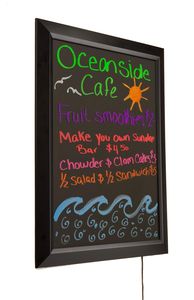 Oceanside
Cafe
Fruit smoothies
Make you own Sunday
Bar $4.50
Chowder & Clam Cakes
1/2 Salad & 1/2 Sandwich